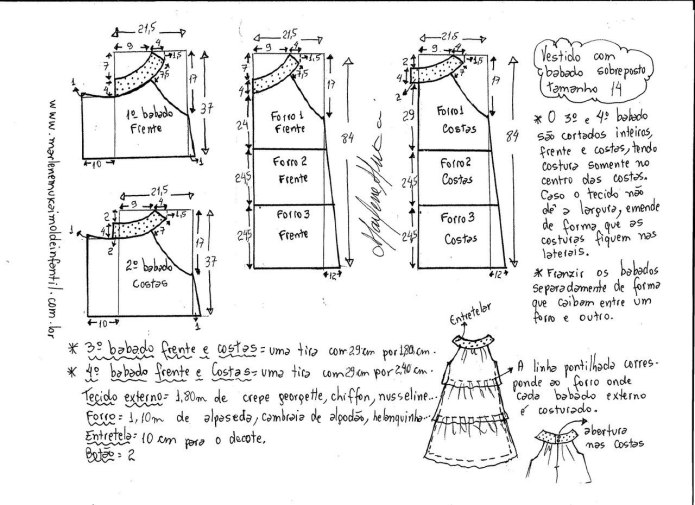 21,5
9
4
1,5
7
4
7,5
17
37
1
1º babado
Frente
10
1
21,5
9
4
1,5
7
4
7,5
17
24
Forro 1
Frente
84
24,5
Forro 2
Frente
24,5
Forro 3
Frente
12
21,5
9
4
1,5
4
2
7,5
17
29
Forro 1
Costas
84
24,5
Forro 2
Costas
24,5
Forro 3
Costas
12
Vestido com
babado sobreposto
tamanho 14
* O 3º e 4º babado
são cortados inteiros,
frente e costas, tendo
costura somente no
centro das costas.
Caso o tecido não
dê a largura, emende
de forma que as
costuras fiquem nas
laterais.
* Franzir os babados
separadamente de forma
que caibam entre um
forro e outro.
www.marlenemukaimoldeinfantil.com.br
21,5
9
4
1,5
2
4
2
7,5
17
37
1
2º babado
Costas
10
1
* 3º babado frente e costas = uma tira com 29 cm por 1,80 cm.
* 4º babado frente e costas = uma tira com 29 cm por 2,40 cm.
Tecido externo = 1,80m de crepe georgette, chiffon, musseline...
Forro = 1,10m de alpaseda, cambraia de algodão, helanquinha...
Entretela = 10 cm para o decote.
Botão = 2
Entretelar
A linha pontilhada corres-
ponde ao forro onde
cada babado externo
é costurado.
abertura
nas costas